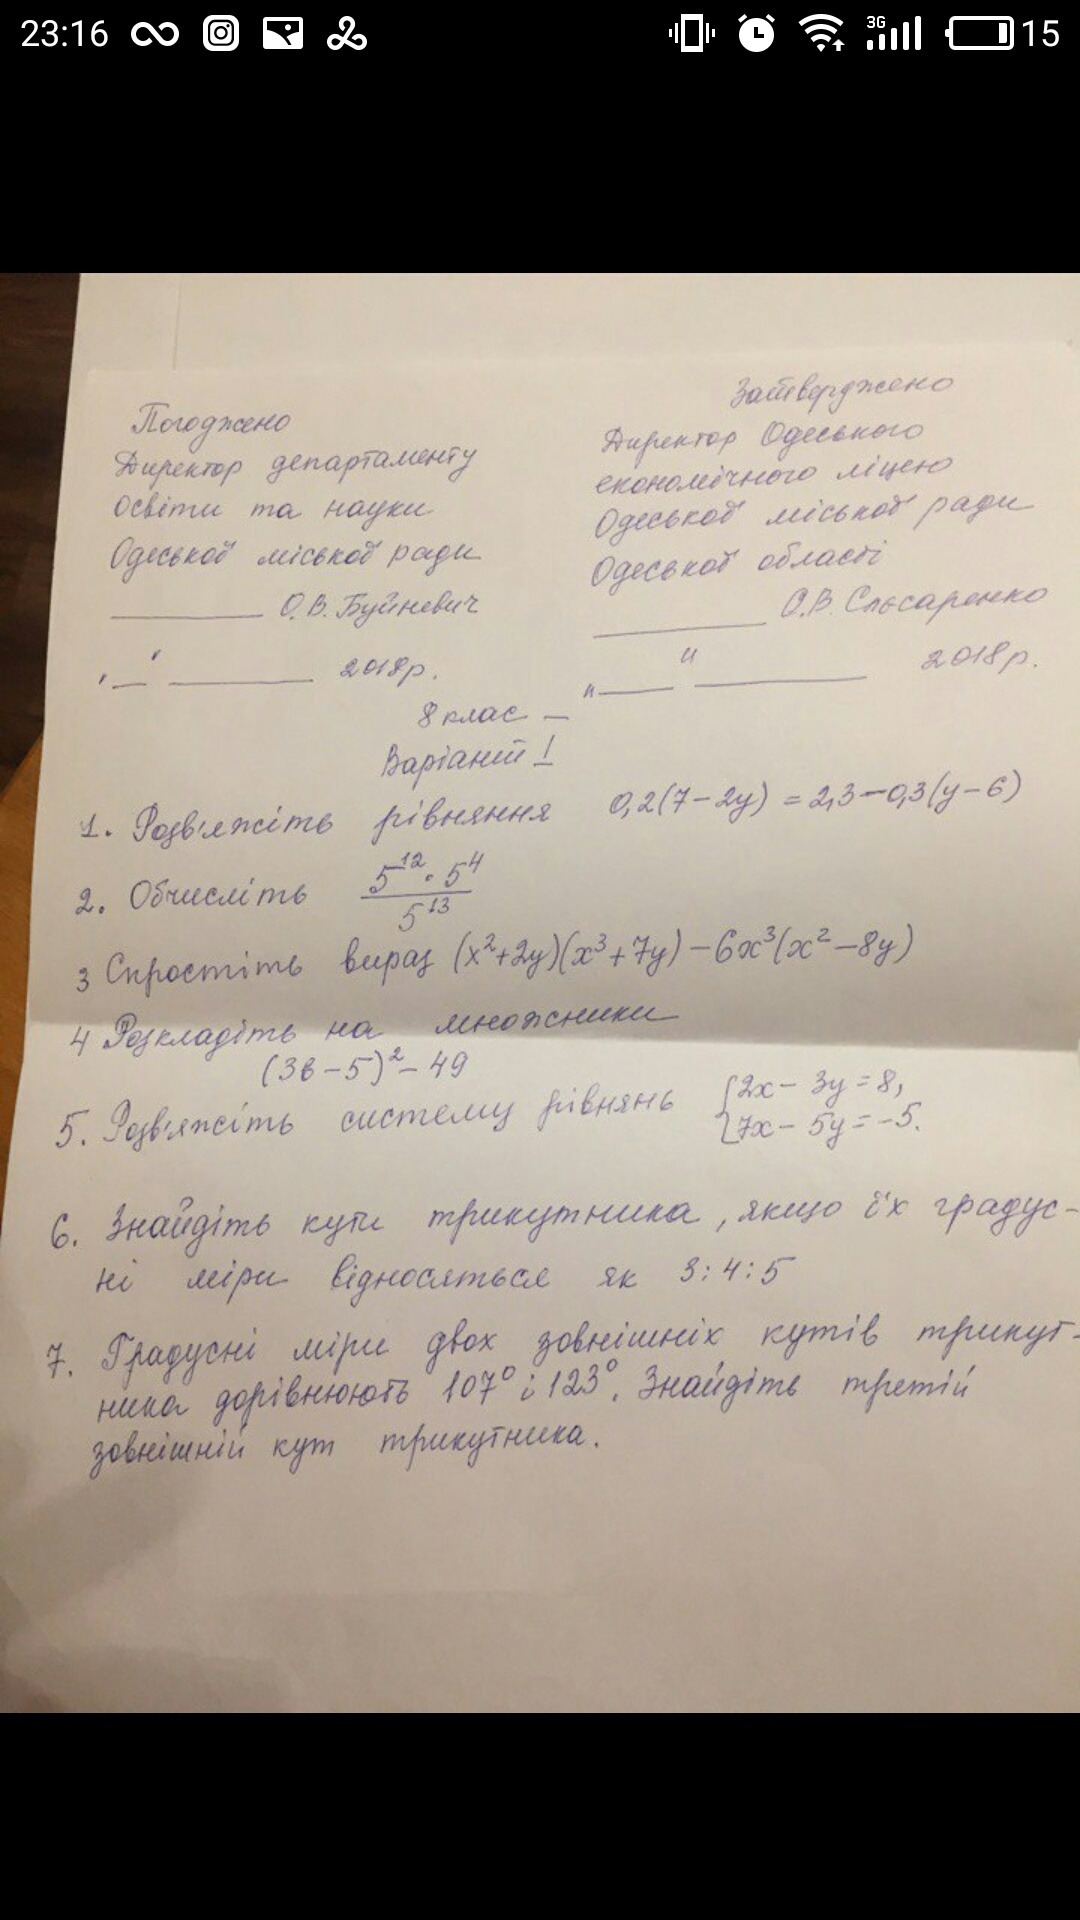 23:16
3G
15
Погоджено
Директор департаменту
освіти та науки
Одеської міської ради
О.В. Буйневич
"__" ________ 2018р.
Затверджено
Директор Одеського
економічного ліцею
Одеської міської ради
Одеської області
О.В. Слюсаренко
"__" ________ 2018р.
8 клас
Варіант I
1. Розв'яжіть рівняння 0,2(7-2y) = 2,3-0,3(y-6)
2. Обчисліть 5^12 · 5^4 / 5^13
3 Спростіть вираз (x²+2y)(x³+7y)-6x³(x²-8y)
4 Розкладіть на множники
(3в-5)²-49
5. Розв'яжіть систему рівнянь {2x-3y=8,
7x-5y=-5.
6. Знайдіть кути трикутника, якщо їх градус-
ні міри відносяться як 3:4:5
7. Градусні міри двох зовнішніх кутів трикут-
ника дорівнюють 107° і 123°. Знайдіть третій
зовнішній кут трикутника.